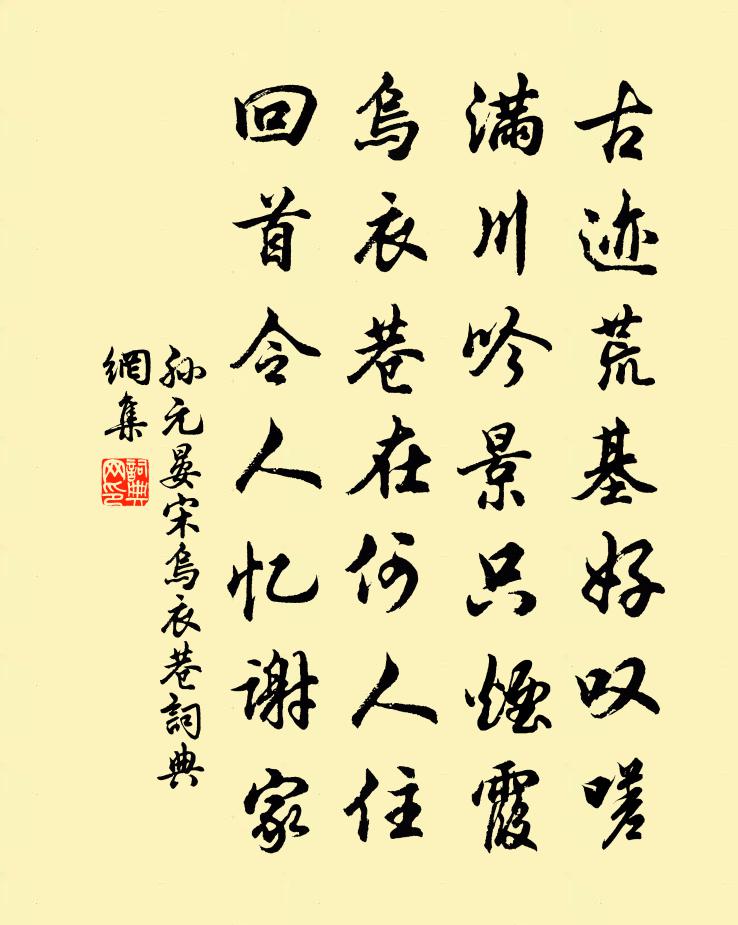 古迹荒基好叹嗟
满川吟景只烟霞
乌衣巷在何人住
回首令人忆谢家
孙元晏宋乌衣巷词典
網集
詞典網印